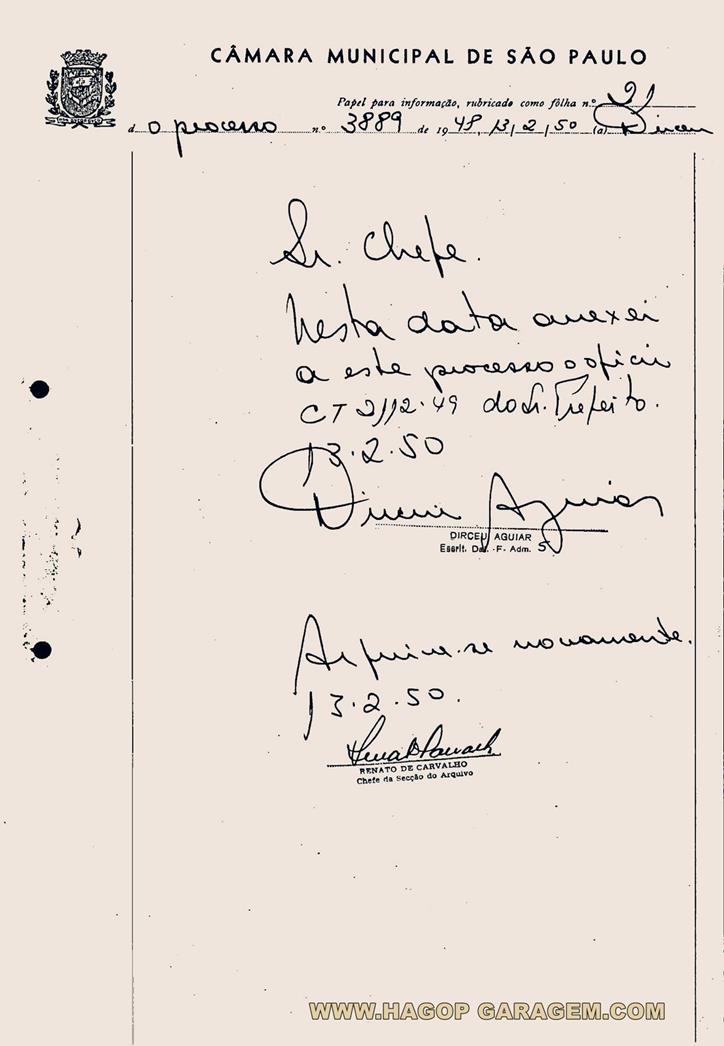 CÂMARA MUNICIPAL DE SÃO PAULO
Papel para informação, rubricado como fôlha n.º 21
d o processo n.º 3889 de 1948, 13/2/50 (a) Dirceu
Sr. Chefe.
Nesta data anexei
a este processo o ofício
CT 2112.49 do Sr. Prefeito.
13.2.50
Dirceu Aguiar
DIRCEU AGUIAR
Escrit. Dat. -F- Adm. 5
Arquive-se novamente.
13.2.50.
RENATO DE CARVALHO
Chefe da Secção do Arquivo
WWW.HAGOP GARAGEM.COM